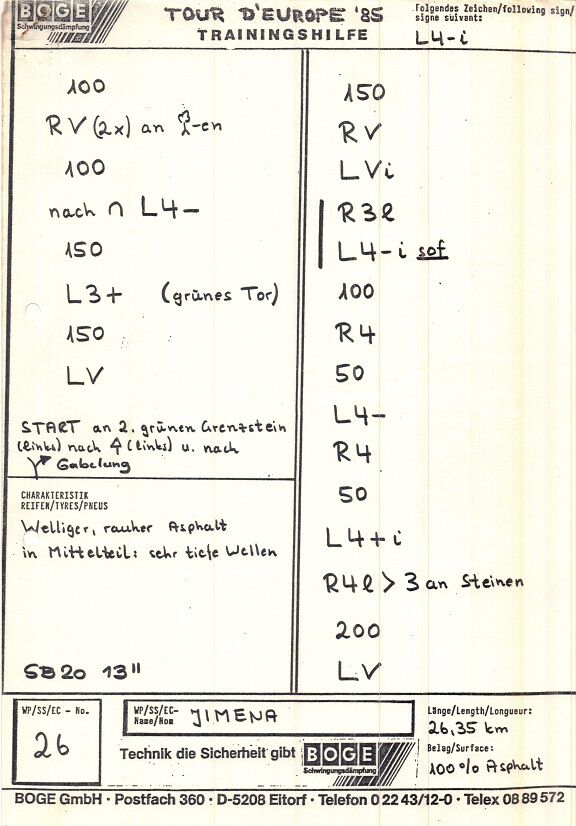 BOGE
Schwingungsdämpfung
TOUR D'EUROPE '85
TRAININGSHILFE
Folgendes Zeichen/following sign/
signe suivant:
L4-i
100
RV (2x) an -en
100
nach ∩ L4-
150
L3+ (grünes Tor)
150
LV
START an 2. grünen Grenzstein
(links) nach (links) u. nach
Gabelung
CHARAKTERISTIK
REIFEN/TYRES/PNEUS
Welliger, rauher Asphalt
in Mittelteil: sehr tiefe Wellen
SB20 13"
150
RV
LVi
R3l
L4-i sof
100
R4
50
L4-
R4
50
L4+i
R4l > 3 an Steinen
200
LV
WP/SS/EC - No.
26
WP/SS/EC-
Name/Nom
JIMENA
Technik die Sicherheit gibt
BOGE
Schwingungsdämpfung
Länge/Length/Longueur:
26,35 km
Belag/Surface:
100% Asphalt
BOGE GmbH · Postfach 360 · D-5208 Eitorf · Telefon 0 22 43/12-0 · Telex 08 89 572